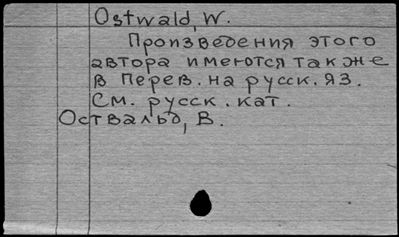 Ostwald, W.
Произведения этого
автора имеются также
в перев. на русск. яз.
См. русск. кат.
Оствальд, В.